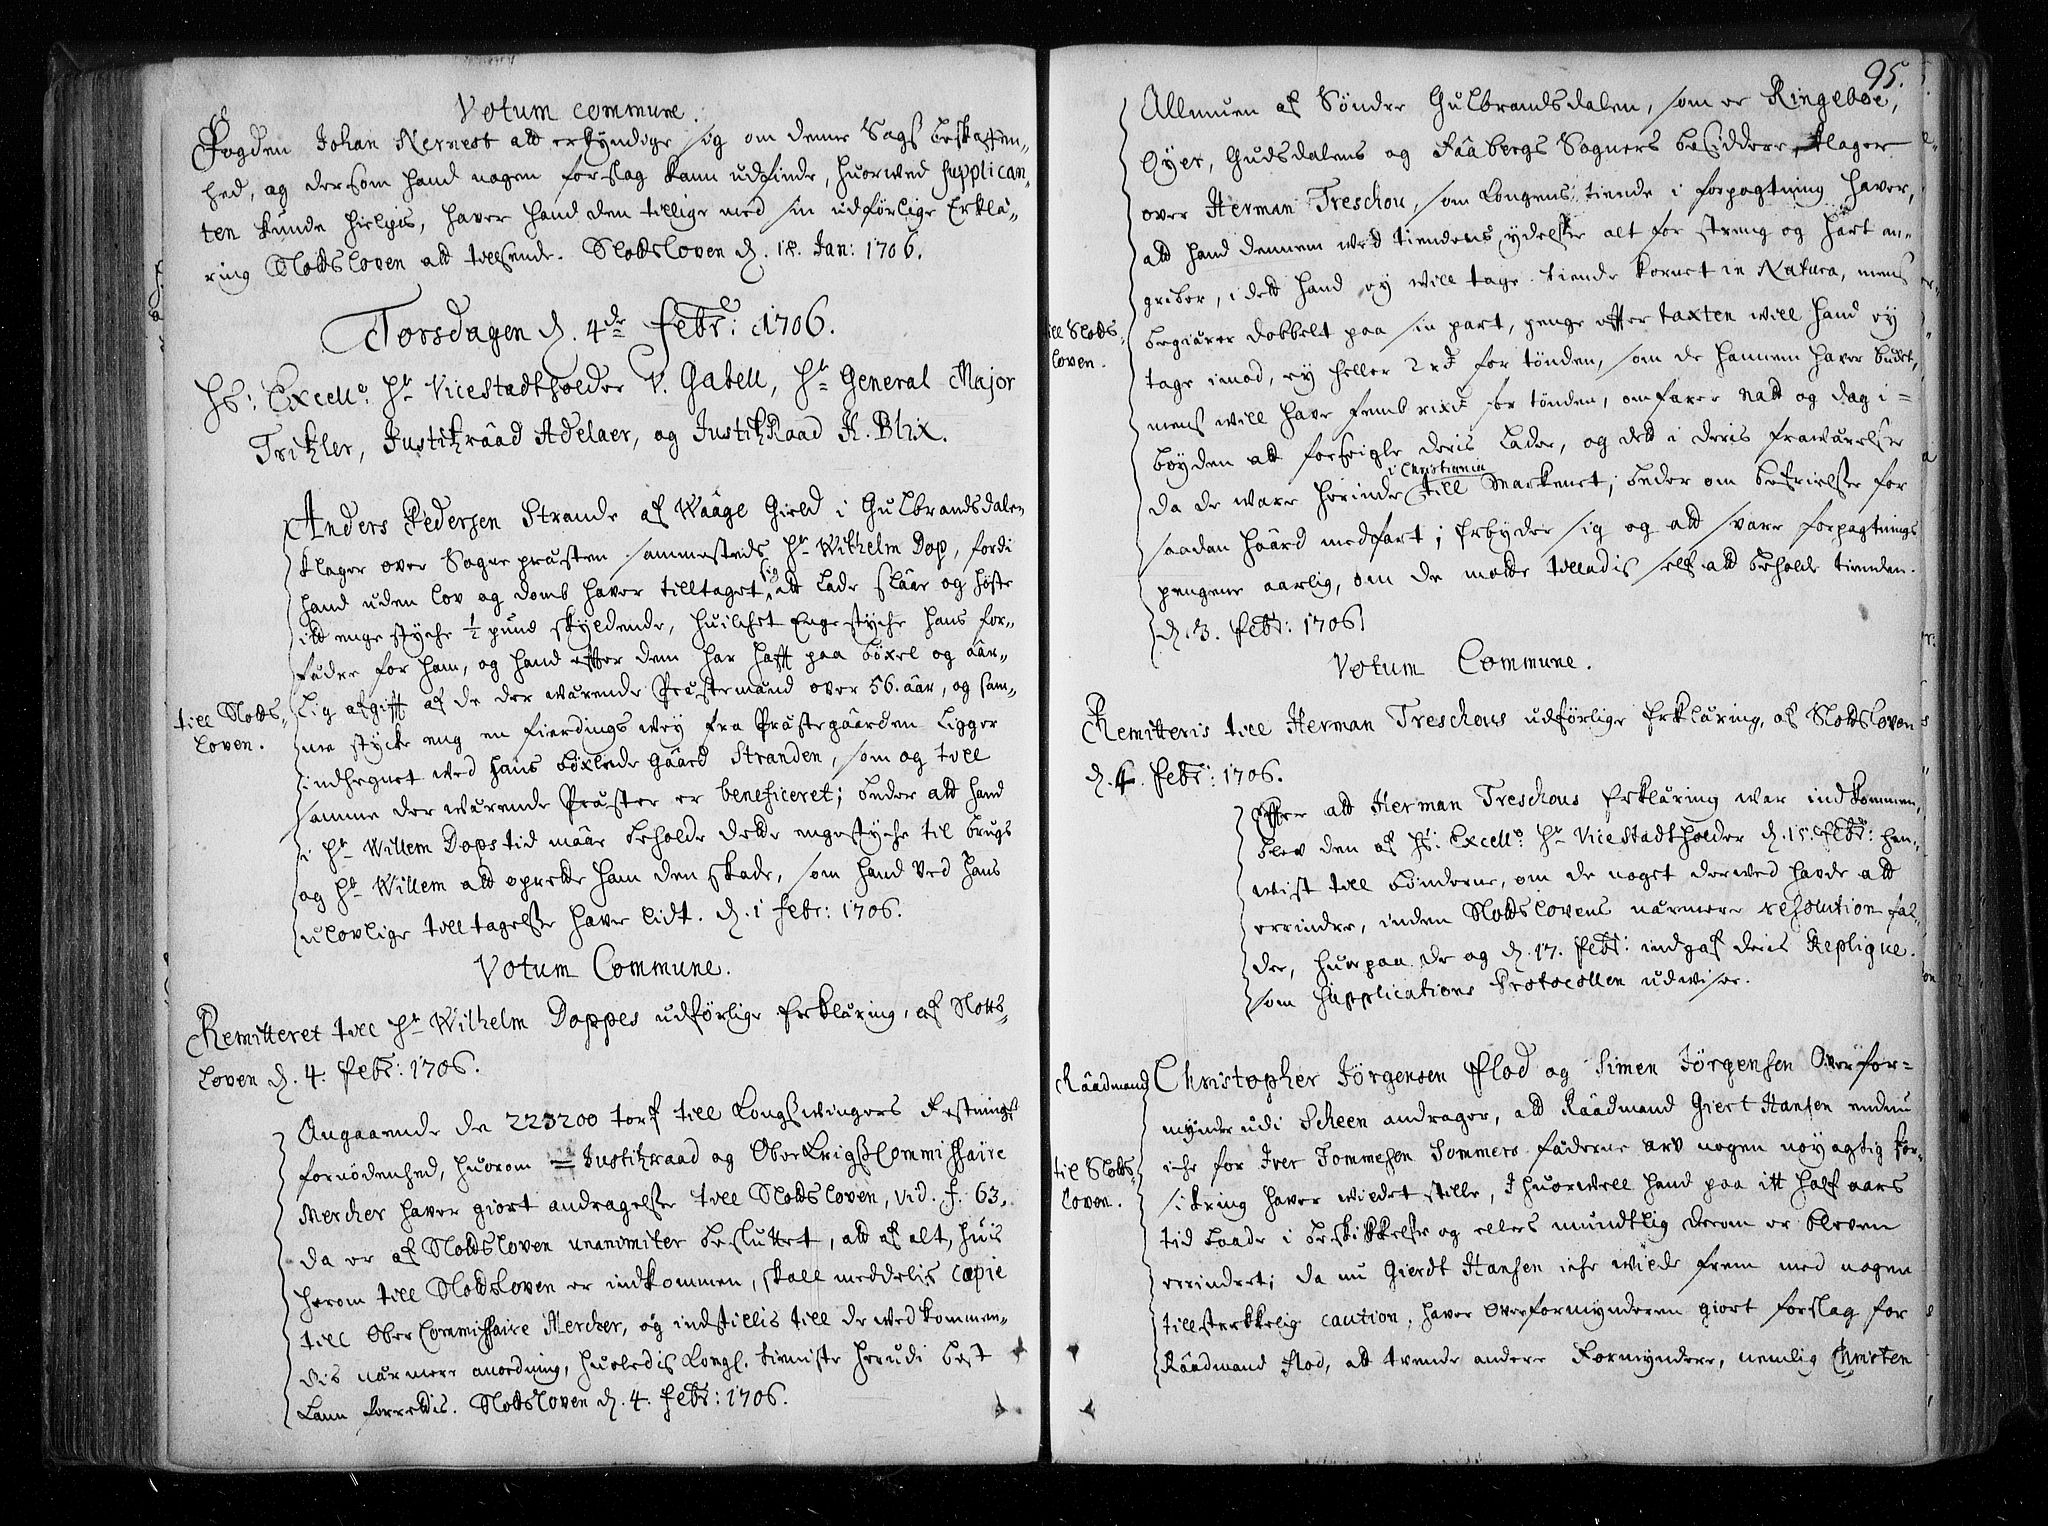 Votum commune.
Fogden Johan Nernest att erkyndige sig om denne Sags beskaffen-
hed, og dersom hand nogen forslag kand udfinde, huorved supplican-
ten kunde hielpes, haver hand den tillige med sin udförlige Erklæ-
ring Slodsloven att tilsende. Slodsloven d. 18. Jan: 1706.
Torsdagen d. 4de Febr: 1706.
Hs: Excell: Hr Vicestadtholder V. Gabell, Hr General Major
Tritzler, Justitzraad Adelaer, og JustitzRaad H. Blix.
Anders Pedersen Strande af Waage Gield i Gulbrandsdalen
klager over Sognepræsten sammesteds Hr Wilhelm Dop, fordi
hand uden lov og domb haver tilltaget sig att lade slaae og höste
itt enge styche 1/2 pund skyldende, huilchet Enge styche hans for-
fædre for ham, og hand effter dem har hafft paa böxel og aar-
lig afgifft af de der værende Præstemænd over 56. aar, og sam-
me stycke eng en fierdings vey fra Præstegaarden ligger
indhegnet ved hans böxlede gaard Stranden, som og till
samme der værende Præster er beneficeret; beder att hand
i Hr Willem Dops tid maae beholde dette engestyche til brugs
og Hr Willem att oprette ham den skade, som hand ved hans
ulovlige tilltagelse haver lidt. d. 1 Febr: 1706.
till Slots-
loven.
Votum Commune.
Remitteret till Hr Wilhelm Doppes udförlige Erklæring, af Slots-
loven d. 4. Febr: 1706.
Angaaende de 223200 torf till Longswingers Festnings
fornödenhed, huorom Justitzraad og OberKrigsCommissaire
Mercher haver giort andragelse till Slotsloven, vid. f. 63,
da er af Slotsloven unanimiter besluttet, att af alt, huis
herom till Slotsloven er indkommen, skall meddelis copie
till OberCommissaire Mercher, og indstillis till de vedkommen-
dis nærmere anordning, huoledis Kongl. tieniste herudi best
kann forrettis. Slotsloven d. 4. Febr: 1706.
95.
Allmuen af Söndre Gulbrandsdalen, som er Ringeboe,
Öyer, Gudsdalens og Faabergs Sogners besiddere, klager
over Herman Treschou, som Kongens tiende i forpagtning haver,
att hand dennem ved tiendens ydelse alt for streng og hart an-
griber, i dett hand ey will tage tiende kornet in Natura, mens
begiærer dobbelt paa sin part, penge effter taxten will hand ey
tage imod, ey heller 2 rd for tönden, som de hannem haver budet,
mens will have femb rixd for tönden, omfarer natt og dag i
böyden att forseigle deris lader, og dett i deris fraværelse
da de ware herinde till i Christiania Markenet; beder om befrielse for
saadan haard medfart; Erbyder sig og att svare forpagtnings
pengene aarlig, om de motte tilladis self att beholde tienden.
d. 3. Febr: 1706.
till Slots-
loven.
Votum Commune.
Remitteris till Herman Treschous udförlige Erklæring, af Slotsloven
d. 4. Febr: 1706.
Effter att Herman Treschous Erklæring war indkommen,
blev den af Hs: Excell: Hr Vicestadtholder d. 15. Febr: hen-
wist till bönderne, om de noget derved hafde att
errindre, inden Slotslovens nærmere resolution fal-
der, huorpaa de og d. 17. Febr: indgaf deris Replique.
som Supplications Protocollen udviser.
Raadmand Christopher Jörgensen Flod og Simen Jörgensen Overfor-
myndere udi Scheen andrager, att Raadmand Giert Hansen endnu
iche for Iver Tommesen Sommers fæderne arv nogen nöyagtig for-
sikring haver wildet stille, i huorvell hand paa itt half aars
tid baade i beskikkelse og ellers mundtlig derom er bleven
errindret; da nu Gierdt Hansen iche wilde frem med nogen
tillstrekkelig caution, haver Overformynderen giort forslag for
Raadmand Flod, att tvende andere Formyndere, nemlig Christen
til Slots-
loven.